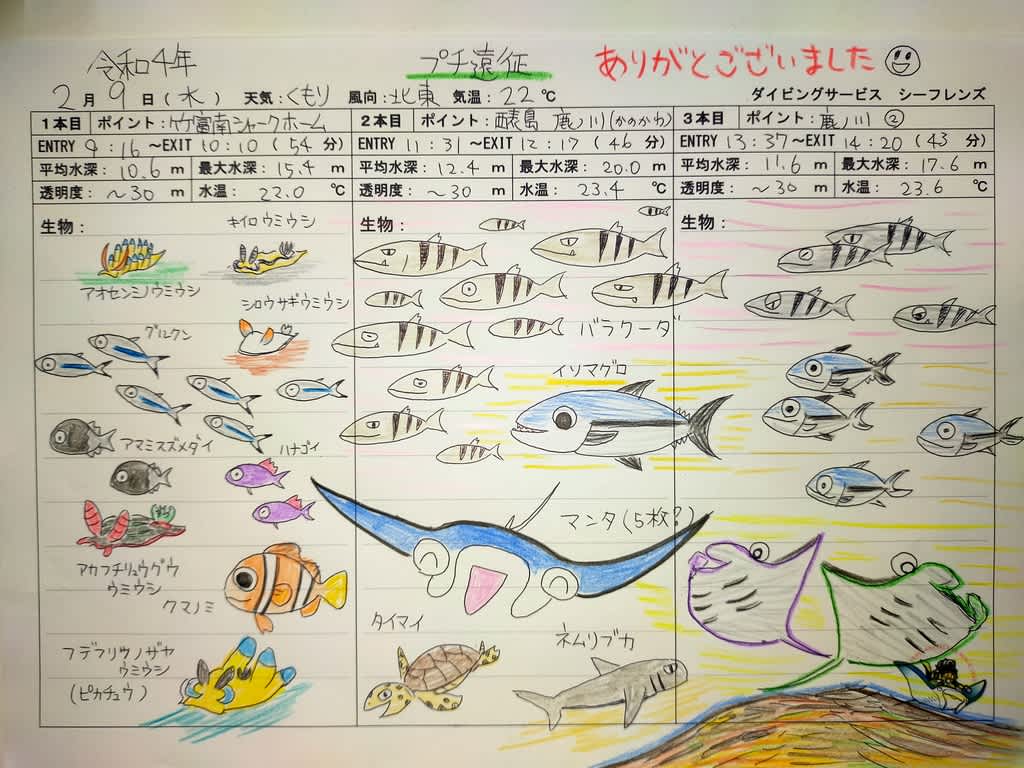 令和4年 プチ遠征 ありがとございました
2月9日(水) 天気:くもり 風向:北東 気温:22℃ ダイビングサービス シーフレンズ
1本目 ポイント:竹富南シャークホーム
ENTRY 9:16〜EXIT 10:10(54分)
平均水深:10.6m 最大水深:15.4m
透明度:〜30m 水温:22.0℃
生物:
キイロウミウシ
アオセンミノウミウシ
シロウサギウミウシ
グルクン
アマミスズメダイ
ハナゴイ
アカフチリュウグウ
ウミウシ
クマノミ
フデフリツノザヤ
ウミウシ
(ピカチュウ)
2本目 ポイント:西表島 鹿ノ川(かのかわ)
ENTRY 11:31〜EXIT 12:17(46分)
平均水深:12.4m 最大水深:20.0m
透明度:〜30m 水温:23.4℃
生物:
バラクーダ
イソマグロ
マンタ(5枚?)
タイマイ
ネムリブカ
3本目 ポイント:鹿ノ川②
ENTRY 13:37〜EXIT 14:20(43分)
平均水深:11.6m 最大水深:17.6m
透明度:〜30m 水温:23.6℃
生物: